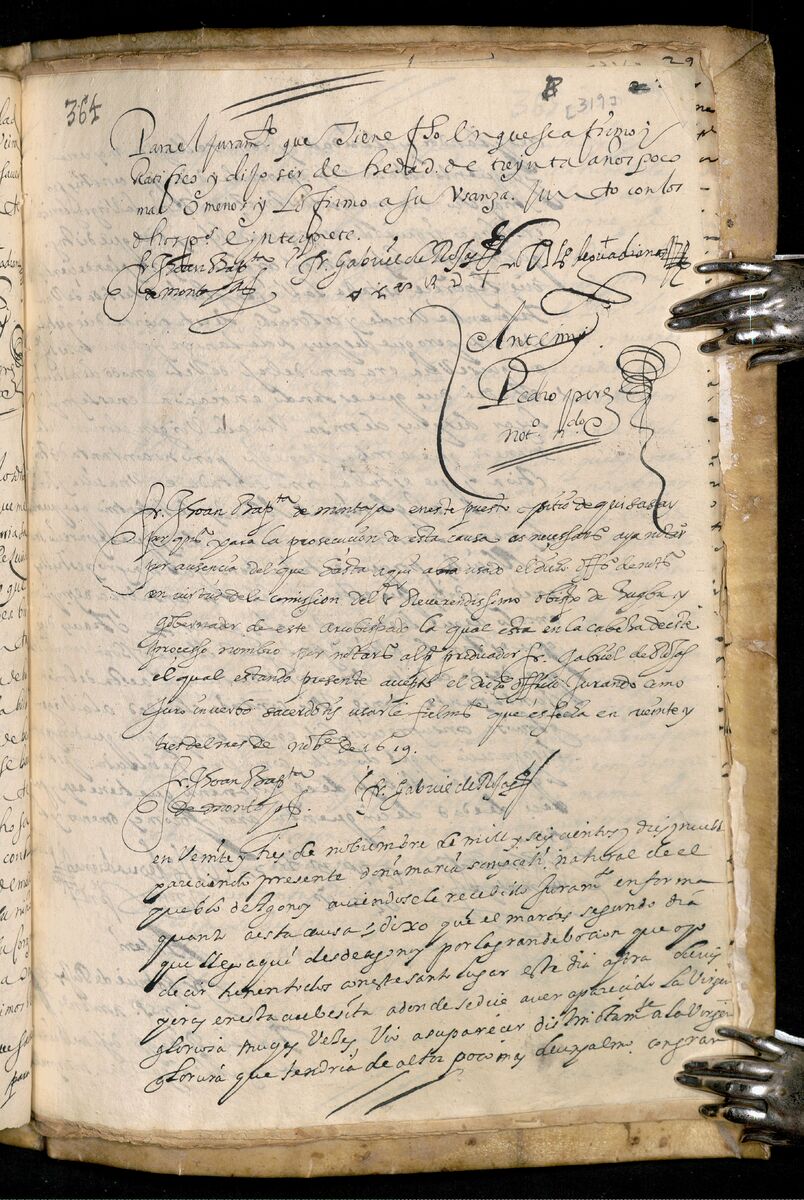 29
364
[319]
Para el juram.to que tiene fho en que se afirmo y
Ratifico y dijo ser de hedad. de treynta años poco
mas O menos y Lo firmo a su Vsanza. Junto con los
dhos p.s e interprete.
fr. Jhoan Bap.ta fr. Gabriel de Rojas
de montoya
Ante mi
Pedro perez
not.o
fr. Jhoan Bap.ta de montoya en este puesto o sitio de
por q.to para la prosecucion de esta causa es necessario aya notar.o
por ausencia del que hasta aqui a usado el dicho off.o de not.o
en virtud de la comission del s.r Reverendissimo obispo de y
gobernador de este arcobispado la qual esta en la cabeza deste
processo nombro por notario al p.e predicador fr. Gabriel de Rojas
el qual estando presente accepto el dicho officio Jurando como
Juro in verbo sacerdotis usarle fielm.te que es fecha en veinte y
tres del mes de nob.e de 1619.
fr. Jhoan Bap.ta fr. Gabriel de Rojas
de montoya
en Veinte y tres de nobiembre de mill y seyscientos y diez y nuebe
pareciendo presente doña maria natural de el
pueblo de Agono y aviendosele recebido Juram.to en forma
quanto a esta causa dixo que el martes segundo dia
que llego aqui desde agono por la gran debocion que oyo
decir tienen todos con este santo lugar este dia
y en esta cuebesita a donde se dice aver aparecido la Virgen
gloriosa muchas veces Vio aparecer distintam.te a la Virgen
gloriosa que tendria de altor poco mas de un palmo con gran